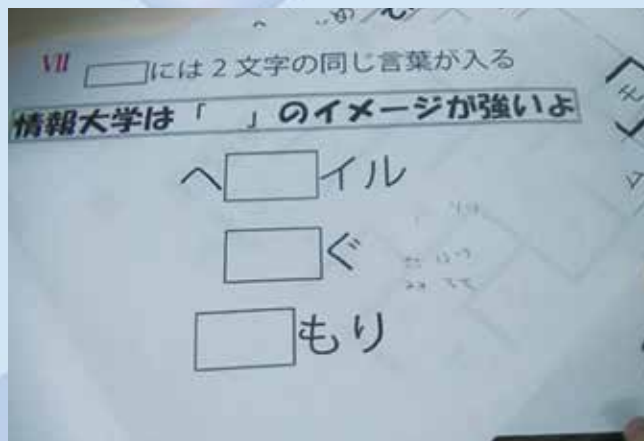 VII □には2文字の同じ言葉が入る
情報大学は「　」のイメージが強いよ
ヘ□イル
□ぐ
□もり